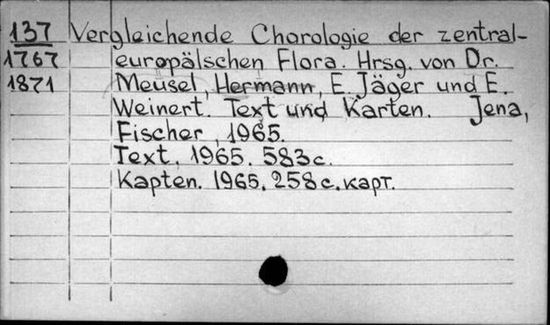 137 Vergleichende Chorologie der zentral-
1767 europälschen Flora. Hrsg. von Dr.
1871 Meusel, Hermann, E. Jäger und E.
Weinert. Text und Karten. Jena,
Fischer, 1965.
Text. 1965. 583 с.
Kapten. 1965. 258 с. карт.